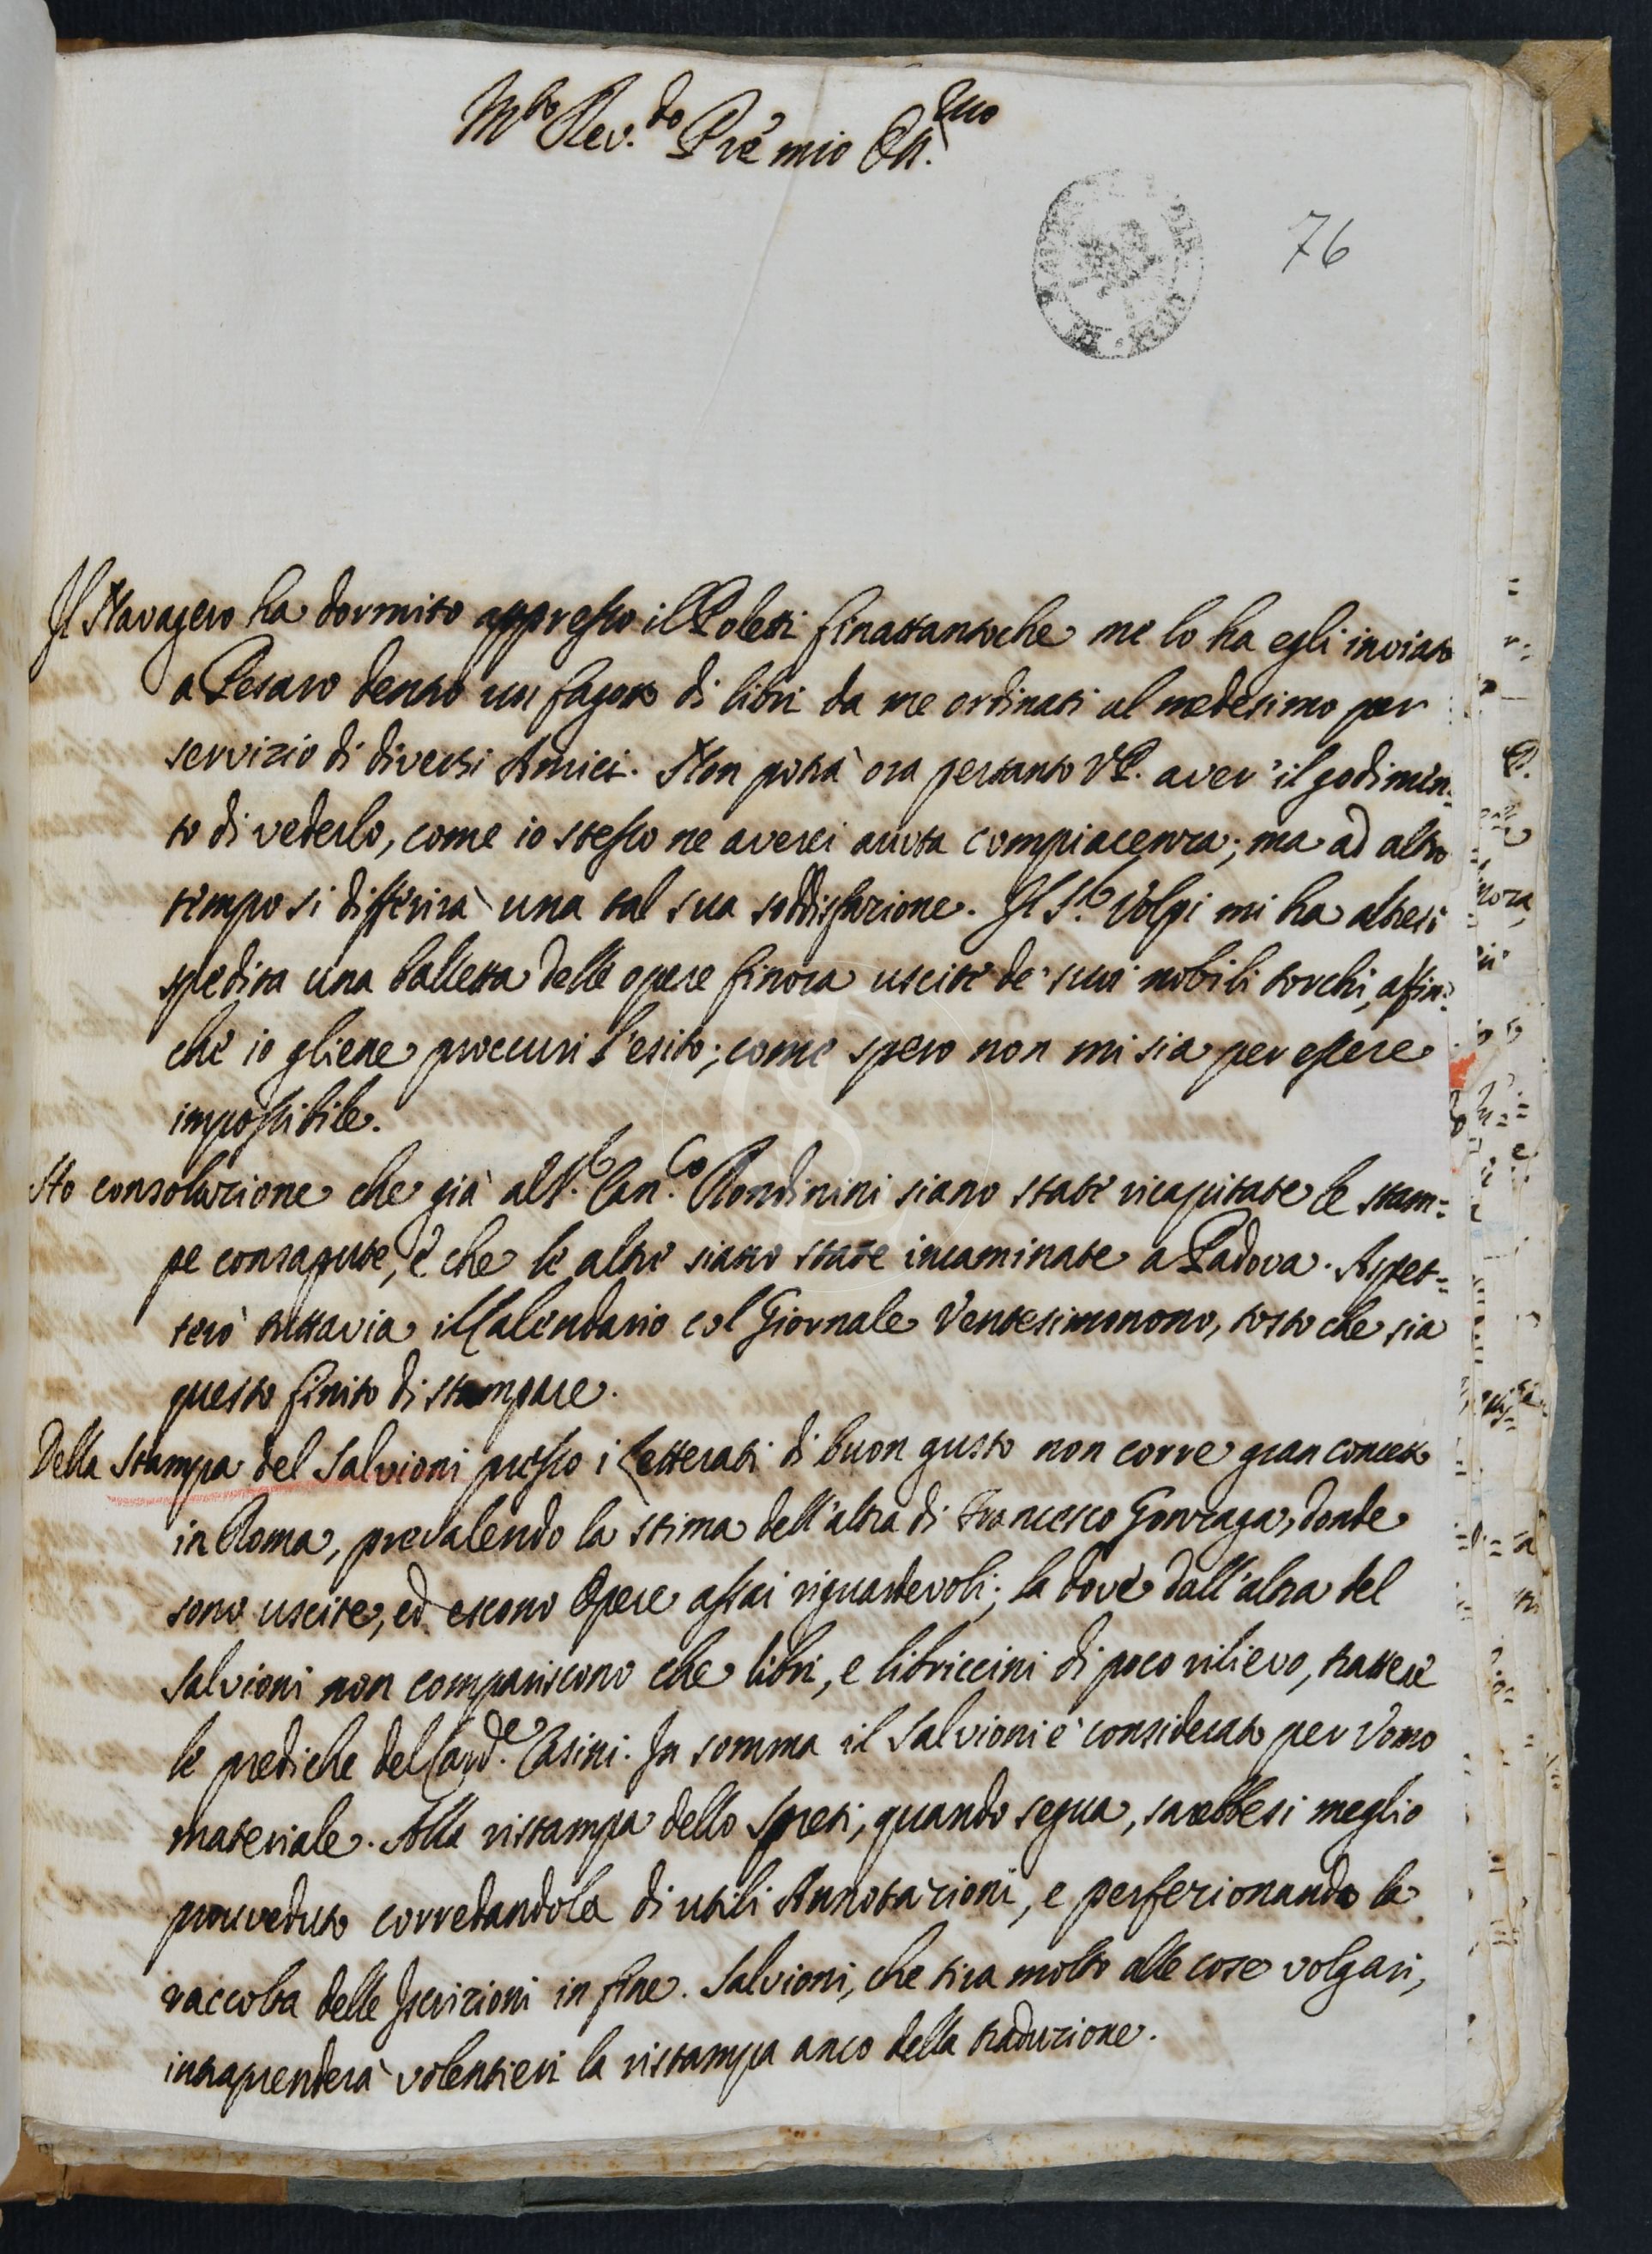 M.to Rev.do Prē mio Oss.mo
76
Il Navagero ha dormito appresso il Poleti finattantoche me lo ha egli inviato
a Pesaro dentro un fagotto di libri da me ordinati al medesimo per
servizio di diversi Amici. Non potrà ora pertanto V.P. aver' il godimen=
to di vederlo, come io stesso ne averei auuta compiacenza; ma ad altro
tempo si differirà una tal sua soddisfazione. Il S.r Volpi mi ha altresì
spedita una balletta delle opere finora uscite de' suoi nobili torchi, affin=
chè io gliene proccuri l'esito; come spero non mi sia per essere
impossibile.
Ho consolazione che già al S.r Can.co Rondinini siano state ricapitate le stam=
pe consapute, e che le altre siano state incaminate a Padova. Aspet=
terò tuttavia il Calendario col Giornale Ventesimonono, tosto che sia
questo finito di stampare.
Della stampa del Salvioni presso i Letterati di buon gusto non corre gran concetto
in Roma, prevalendo la stima dell'altra di Francesco Gonzaga, donde
sono uscite, ed escono Opere assai riguardevoli; la dove dall'altra del
Salvioni non compariscono che libri, e libriccini di poco rilievo, trattene
le prediche del Card.e Casini. In somma il Salvioni è considerato per Vomo
materiale. Alla ristampa dello Spreti, quando segua, sarebbesi meglio
prouveduto corredandola di utili Annotazioni, e perfezionando la
raccolta delle Iscrizioni in fine. Salvioni, che tira molto alle cose volgari,
intraprenderà volentieri la ristampa anco della traduzione.